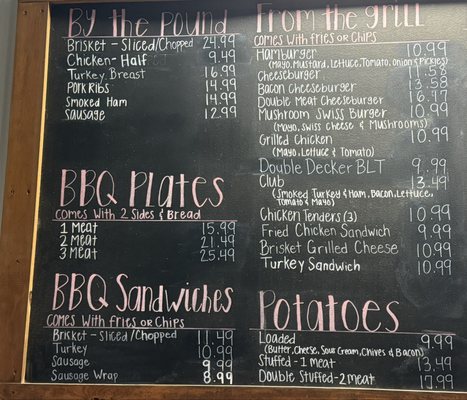 By the Pound
Brisket - Sliced/Chopped 24.99
Chicken - Half 9.49
Turkey Breast 16.99
Pork Ribs 14.99
Smoked Ham 14.99
Sausage 12.99
BBQ Plates
Comes with 2 Sides & Bread
1 Meat 15.99
2 Meat 21.49
3 Meat 25.49
BBQ Sandwiches
Comes with fries or chips
Brisket - Sliced/Chopped 11.49
Turkey 10.99
Sausage 9.99
Sausage Wrap 8.99
From the grill
Comes with fries or chips
Hamburger 10.99
(Mayo, Mustard, Lettuce, Tomato, Onion & Pickles)
Cheeseburger 11.58
Bacon Cheeseburger 13.58
Double Meat Cheeseburger 16.97
Mushroom Swiss Burger 10.99
(Mayo, Swiss Cheese & Mushrooms)
Grilled Chicken 10.99
(Mayo, Lettuce & Tomato)
Double Decker BLT 9.99
Club 13.49
(Smoked Turkey & Ham, Bacon, Lettuce,
Tomato & Mayo)
Chicken Tenders (3) 10.99
Fried Chicken Sandwich 9.99
Brisket Grilled Cheese 10.99
Turkey Sandwich 10.99
Potatoes
Loaded 9.99
(Butter, Cheese, Sour Cream, Chives & Bacon)
Stuffed - 1 meat 13.49
Double Stuffed - 2 meat 17.99